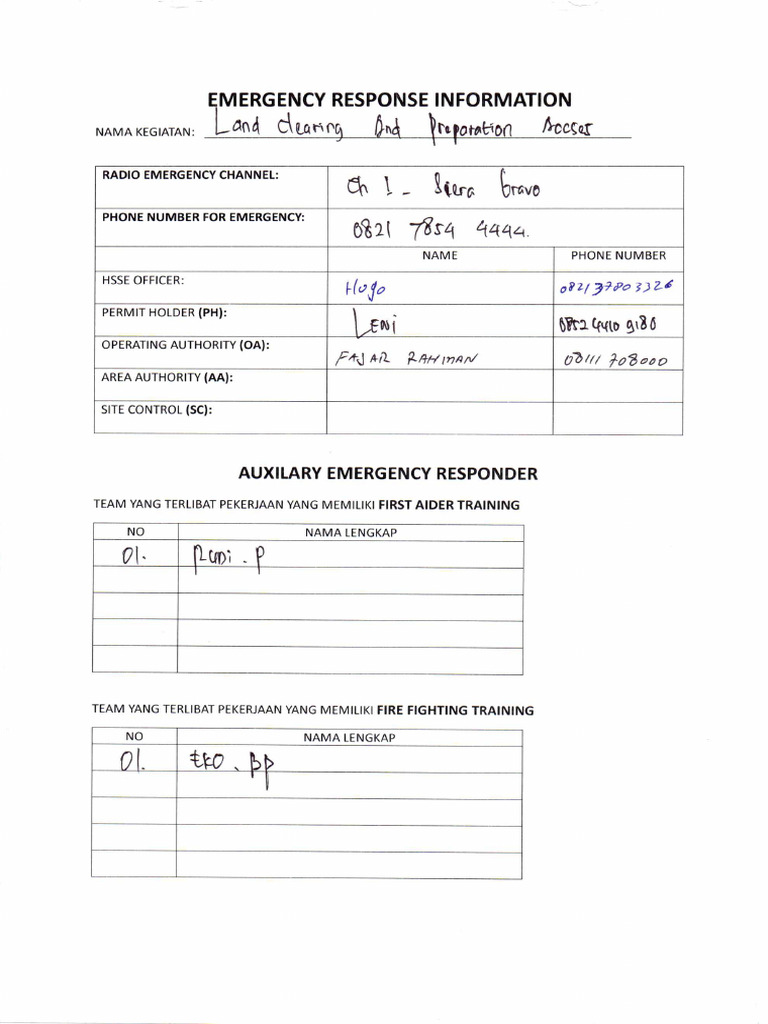 EMERGENCY RESPONSE INFORMATION
NAMA KEGIATAN: Land Clearing And Preparation Accses
RADIO EMERGENCY CHANNEL: Ch 1 - Siera Gravo
PHONE NUMBER FOR EMERGENCY: 0821 7854 4444.
NAME PHONE NUMBER
HSSE OFFICER: Hugo 082137803326
PERMIT HOLDER (PH): LENI 0852 4410 9180
OPERATING AUTHORITY (OA): FAJAR RAHMAN 08111 708000
AREA AUTHORITY (AA):
SITE CONTROL (SC):
AUXILARY EMERGENCY RESPONDER
TEAM YANG TERLIBAT PEKERJAAN YANG MEMILIKI FIRST AIDER TRAINING
NO NAMA LENGKAP
01. P
TEAM YANG TERLIBAT PEKERJAAN YANG MEMILIKI FIRE FIGHTING TRAINING
NO NAMA LENGKAP
01. EKO. BP